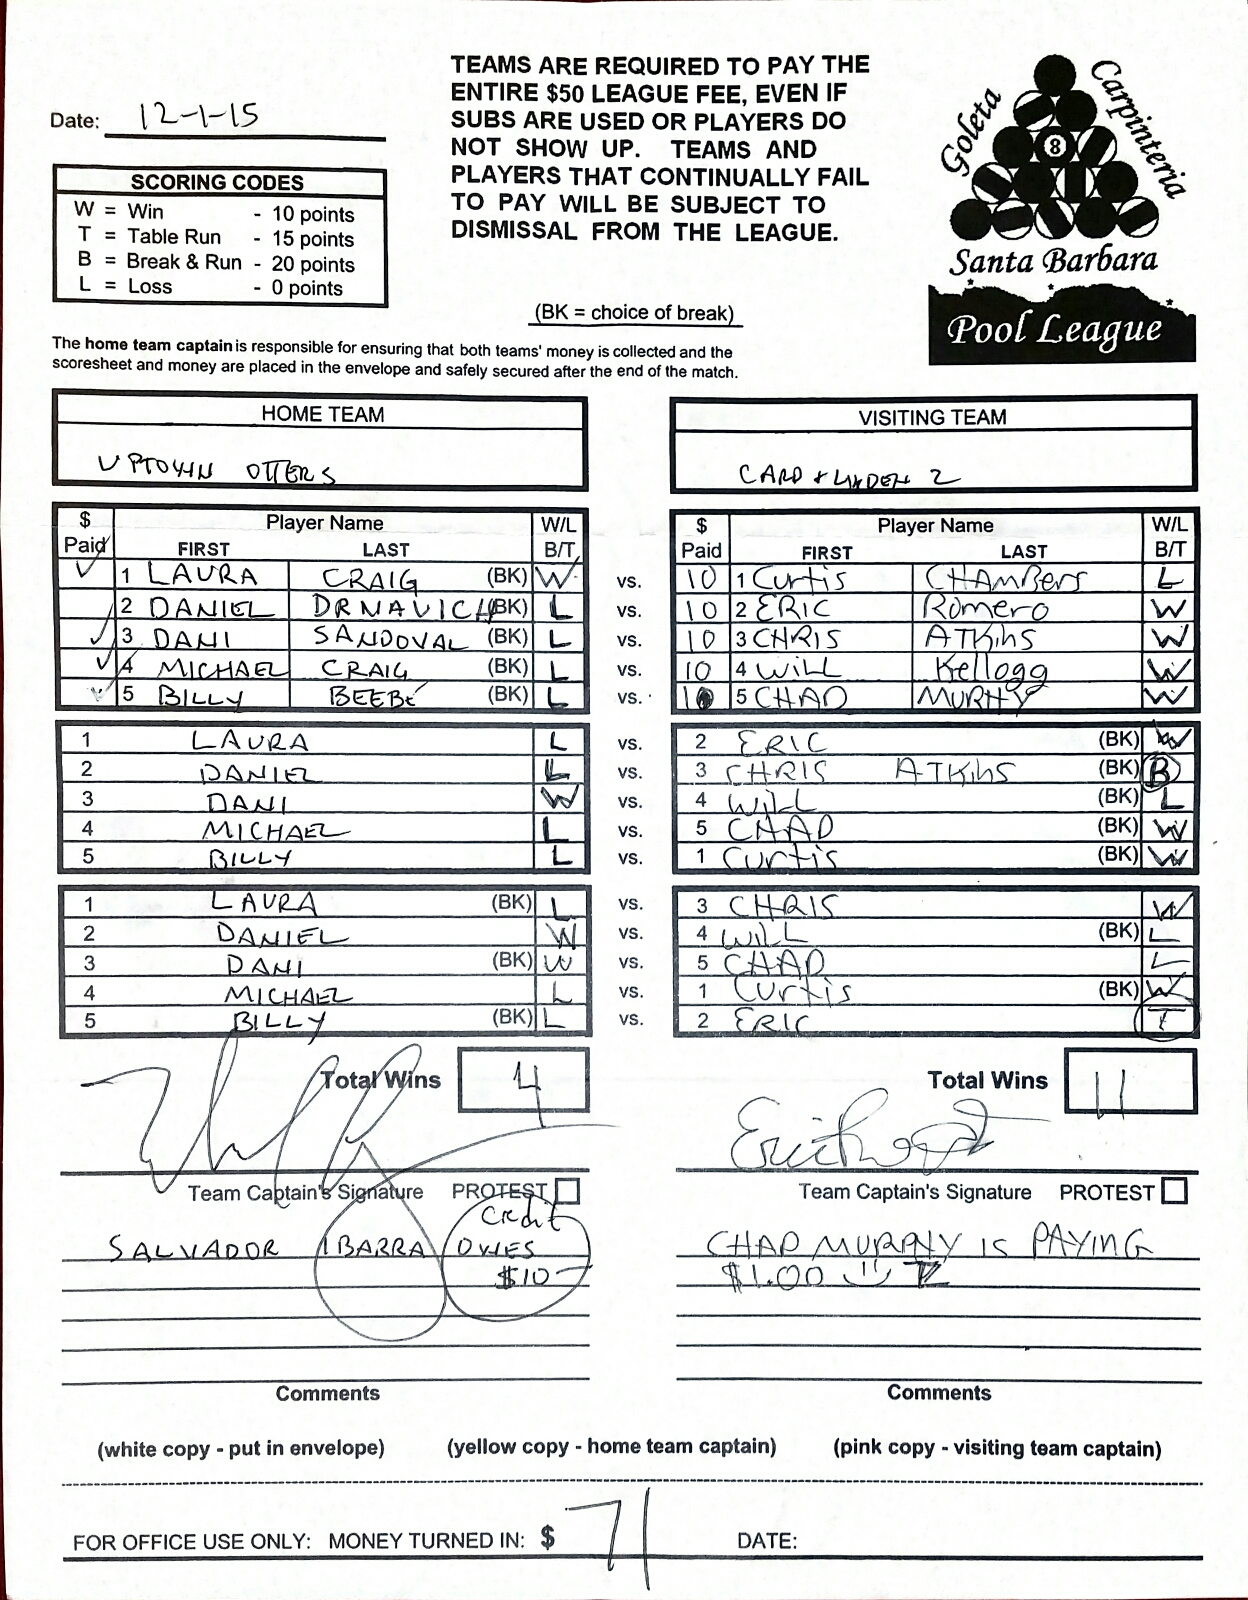 Date: 12-1-15
TEAMS ARE REQUIRED TO PAY THE
ENTIRE $50 LEAGUE FEE, EVEN IF
SUBS ARE USED OR PLAYERS DO
NOT SHOW UP. TEAMS AND
PLAYERS THAT CONTINUALLY FAIL
TO PAY WILL BE SUBJECT TO
DISMISSAL FROM THE LEAGUE.
Goleta Carpinteria
8
Santa Barbara
Pool League
SCORING CODES
W = Win - 10 points
T = Table Run - 15 points
B = Break & Run - 20 points
L = Loss - 0 points
(BK = choice of break)
The home team captain is responsible for ensuring that both teams' money is collected and the
scoresheet and money are placed in the envelope and safely secured after the end of the match.
HOME TEAM VISITING TEAM
UPTOWN OTTERS CARP & LINDEN 2
$ Paid Player Name FIRST LAST W/L B/T $ Paid Player Name FIRST LAST W/L B/T
1 LAURA CRAIG (BK) W vs. 10 1 Curtis CHAMBERS L
2 DANIEL DRNAVICH (BK) L vs. 10 2 ERIC Romero W
3 DANI SANDOVAL (BK) L vs. 10 3 CHRIS ATKINS W
4 MICHAEL CRAIG (BK) L vs. 10 4 WILL Kellogg W
5 BILLY BEEBE (BK) L vs. 5 CHAD MURHY W
1 LAURA L vs. 2 ERIC (BK) W
2 DANIEL L vs. 3 CHRIS ATKINS (BK) B
3 DANI W vs. 4 WILL (BK) L
4 MICHAEL L vs. 5 CHAD (BK) W
5 BILLY L vs. 1 Curtis (BK) W
1 LAURA (BK) L vs. 3 CHRIS W
2 DANIEL W vs. 4 WILL (BK) L
3 DANI (BK) W vs. 5 CHAD L
4 MICHAEL L vs. 1 Curtis (BK) W
5 BILLY (BK) L vs. 2 ERIC T
Total Wins 4 Total Wins 11
Team Captain's Signature PROTEST Team Captain's Signature PROTEST
Credit
SALVADOR IBARRA OWES CHAD MURPHY IS PAYING
$10 $1.00
Comments Comments
(white copy - put in envelope) (yellow copy - home team captain) (pink copy - visiting team captain)
FOR OFFICE USE ONLY: MONEY TURNED IN: $ 71 DATE: